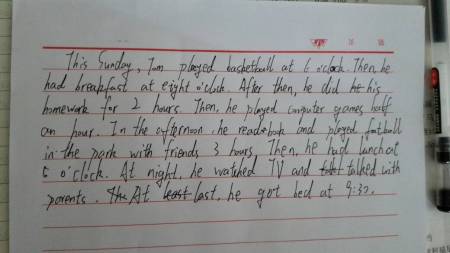 This Sunday, Tom played basketball at 6 o'clock. Then, he
had breakfast at eight o'clock. After then, he did his
homework for 2 hours. Then, he played computer games half
an hour. In the afternoon, he read book and played football
in the park with friends 3 hours. Then, he had lunch at
o'clock. At night, he watched TV and talked with
parents. At last, he got bed at 9:30.